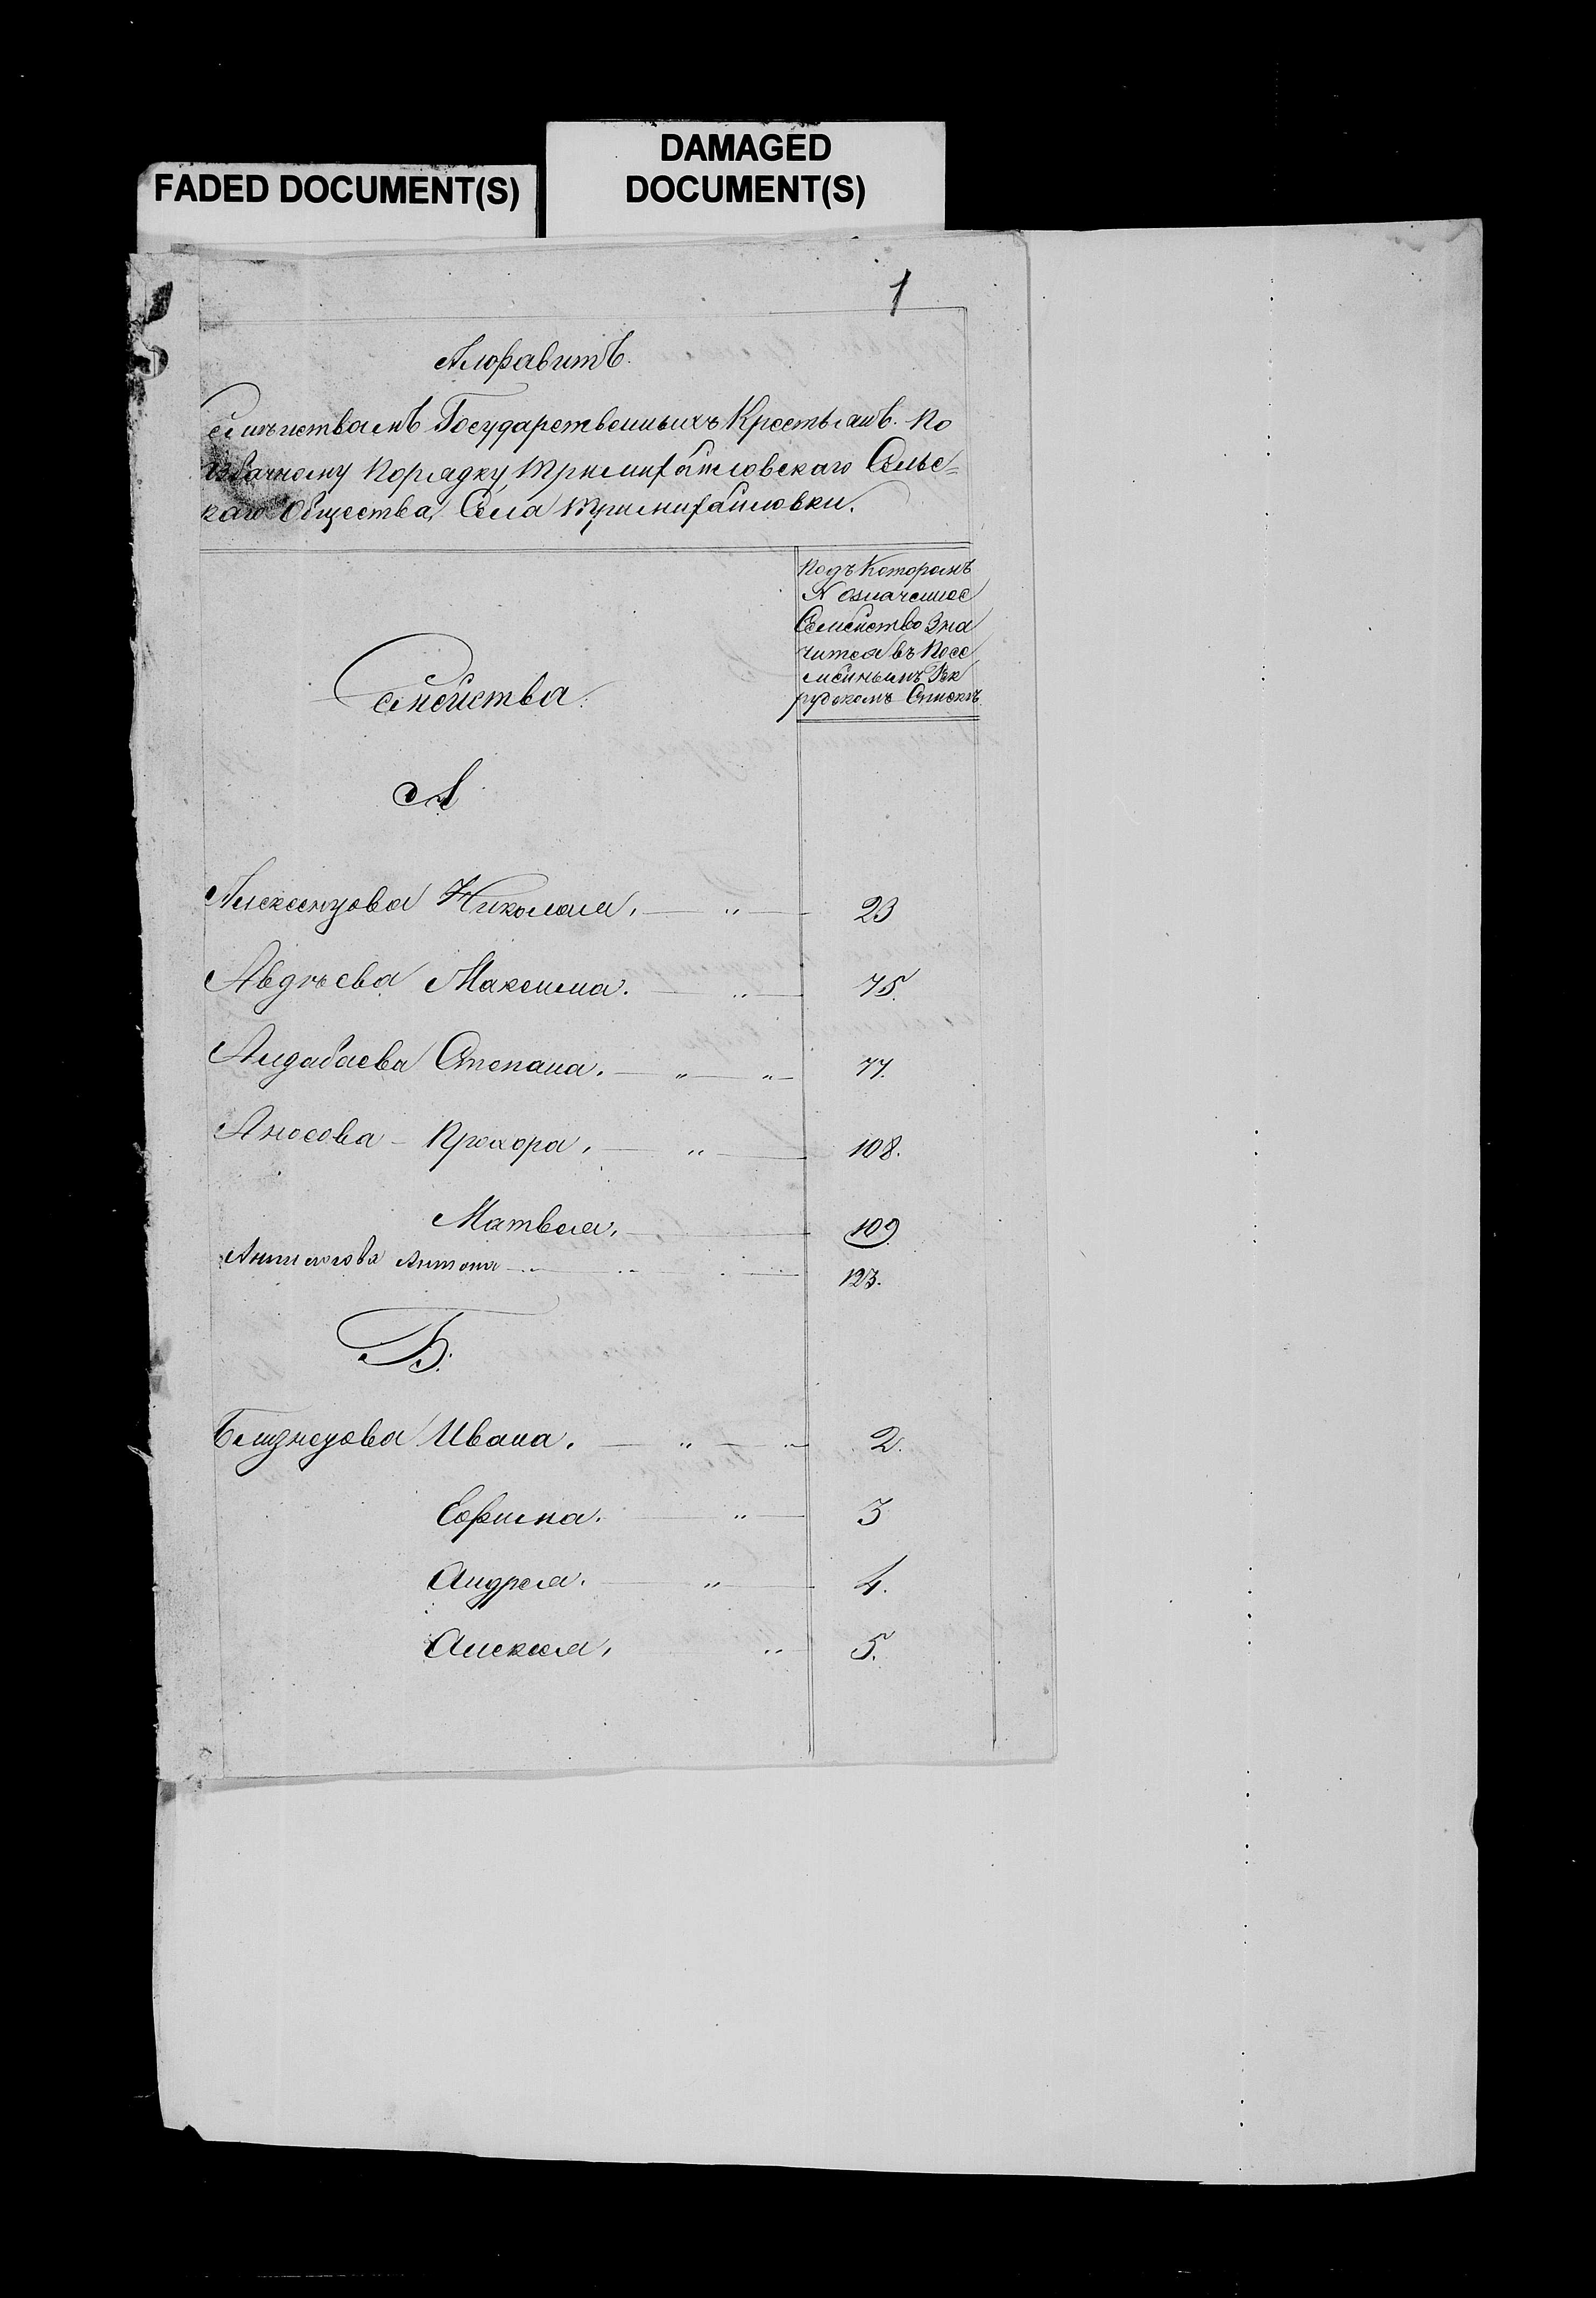 FADED DOCUMENT(S)
DAMAGED
DOCUMENT(S)
1
Алфавитъ.
Семѣйствамъ Государственныхъ Крестьянъ. По
Азбучному Порядку, Тримихайловскаго Сельс=
каго Общества, Села Тримихайловки.
Подъ Которымъ
N Означенное
Семейство Зна
чится въ Посе
мейнымъ Рек
рутскомъ Спискѣ
Семейства.
А
Алексенцова Николая. — " — 23
Авдѣева Максима. — " — 75.
Айдабаева Степана. — " — " — 77.
Аносова — Прохора, — " — 108.
Матвея, — 109
Антона — 123.
Б.
Ивана. — " — " — 2.
Ефима. — " — 3
Андрея. — " — 4.
Алексея, " — 5.